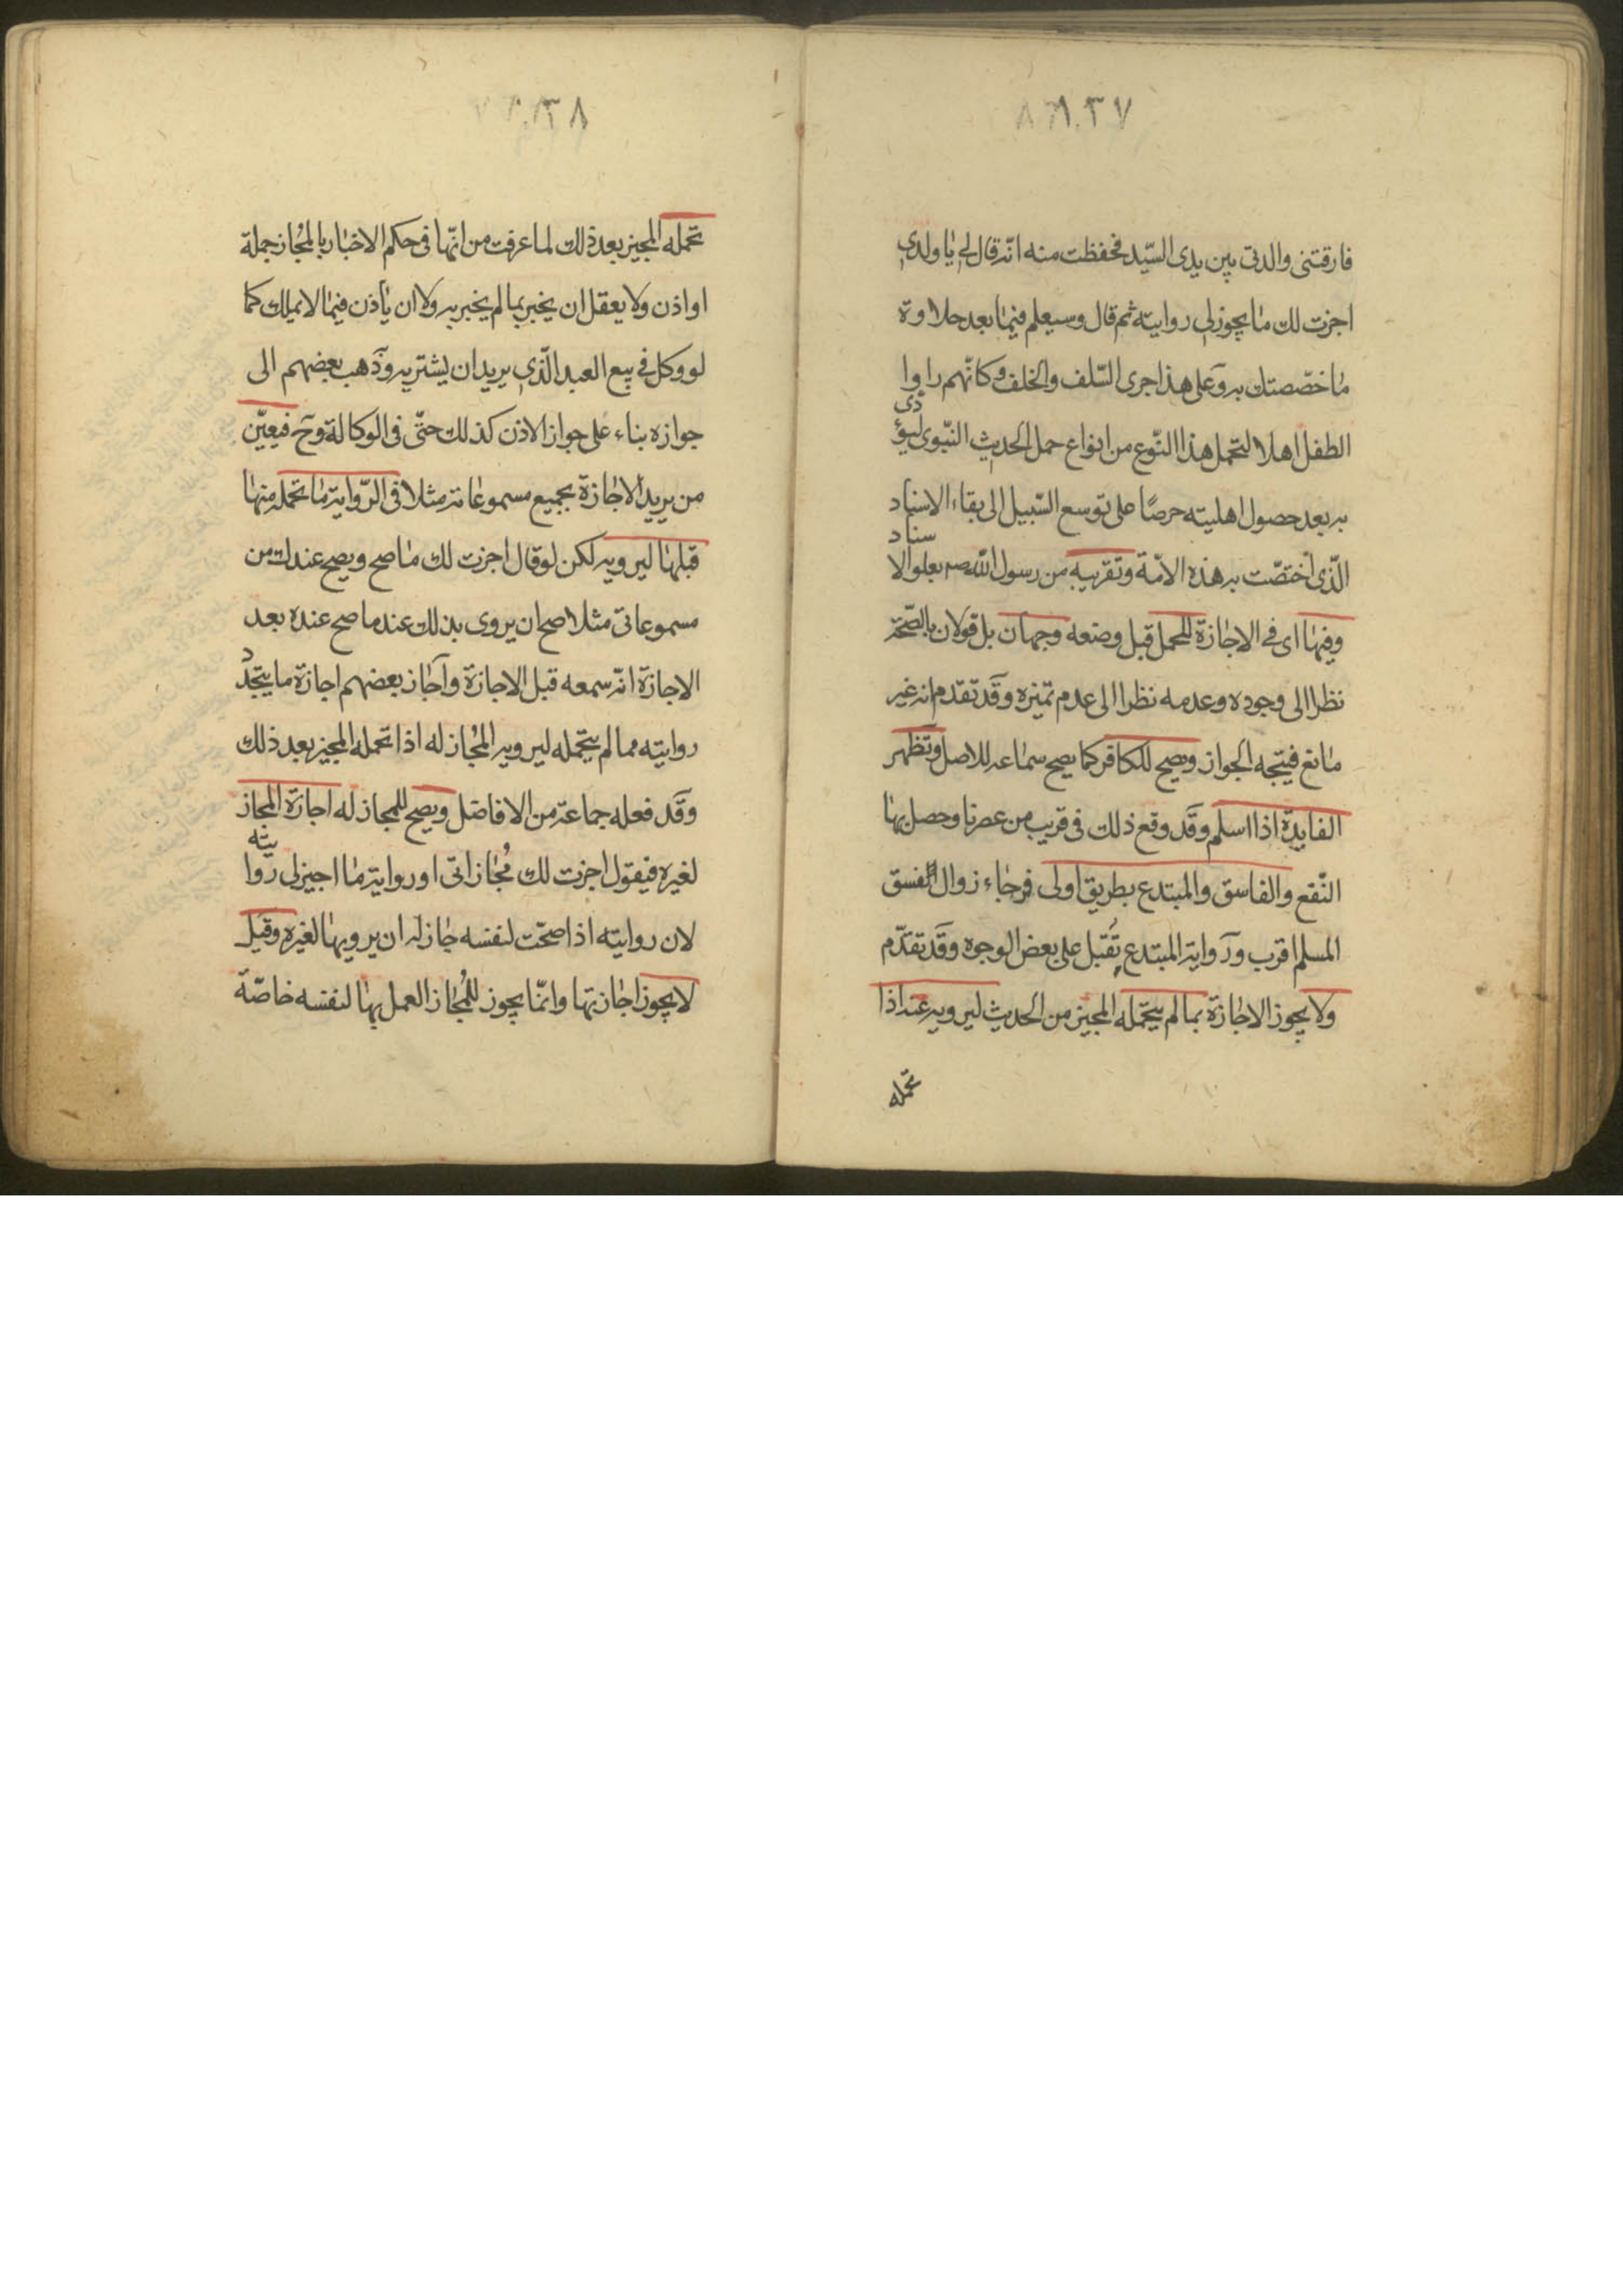 ٨٣٧
فارقتنى والدتى بين يدى السّيّد فحفظت منه انّه قال لى يا ولدى
اجزت لك ما يجوز لى روايته ثم قال وستعلم فيما بعد حلاوة
ما خصّصتك به وعلى هذا جرى السّلف والخلف وكانّهم راوا
الطفل اهلا لتحمل هذا النّوع من انواع حمل الحديث النّبوى ليؤدى
به بعد حصول اهليته حرصًا على توسع السّبيل الى بقاء الاسناد
الّذى اختصّت به هذه الامّة وتقريبه من رسول الله ص بعلو الاسناد
وفيها اى فى الاجازة للحمل قبل وضعه وجهان بل قولان بالصّحة
نظرا الى وجوده وعدمه نظرا الى عدم تميزه وقد تقدم انه غير
مانع فيتجه الجواز ويصح للكافر كما يصح سماعه للاصل وتظهر
الفايدة اذا اسلم وقد وقع ذلك فى قريب من عصرنا وحصل بها
النّفع والفاسق والمبتدع بطريق اولى فرجاء زوال الفسق
المسلم اقرب ورواية المبتدع تُقبل على بعض الوجوه وقد تقدّم
ولا يجوز الاجازة بما لم يتحمله المجيز من الحديث ليرويه عنه اذا
تحمله
٨٣٨
تحمله المجيز بعد ذلك لما عرفت من انّها فى حكم الاخبار بالمُجاز جملة
او اذن ولا يعقل ان يخبر بما لم يخبر به ولا ان يأذن فيما لا يملك كما
لو وكل فى بيع العبد الّذى يريد ان يشتريه وذهب بعضهم الى
جوازه بناء على جواز الاذن كذلك حتّى فى الوكالة وح فيعيّن
من يريد الاجازة بجميع مسموعاته مثلا فى الرّواية ما تحمله منها
قبلها ليرويه لكن لو قال اجزت لك ما صح ويصح عندك من
مسموعاتى مثلا صح ان يروى بذلك عنه ما صح عنده بعد
الاجازة انّه سمعه قبل الاجازة واجاز بعضهم اجازة ما يتجدّد
روايته مما لم يتحمله ليرويه المُجاز له اذا تحمله المجيز بعد ذلك
وقد فعله جماعة من الافاضل ويصح للمجاز له اجازة المجاز
لغيره فيقول اجزت لك مُجازاتى او رواية ما اجيز لى روايته
لان روايته اذا صحّت لنفسه جاز له ان يرويها لغيره وقيل
لا يجوز اجازتها وانّما يجوز للمُجاز العمل بها لنفسه خاصّة